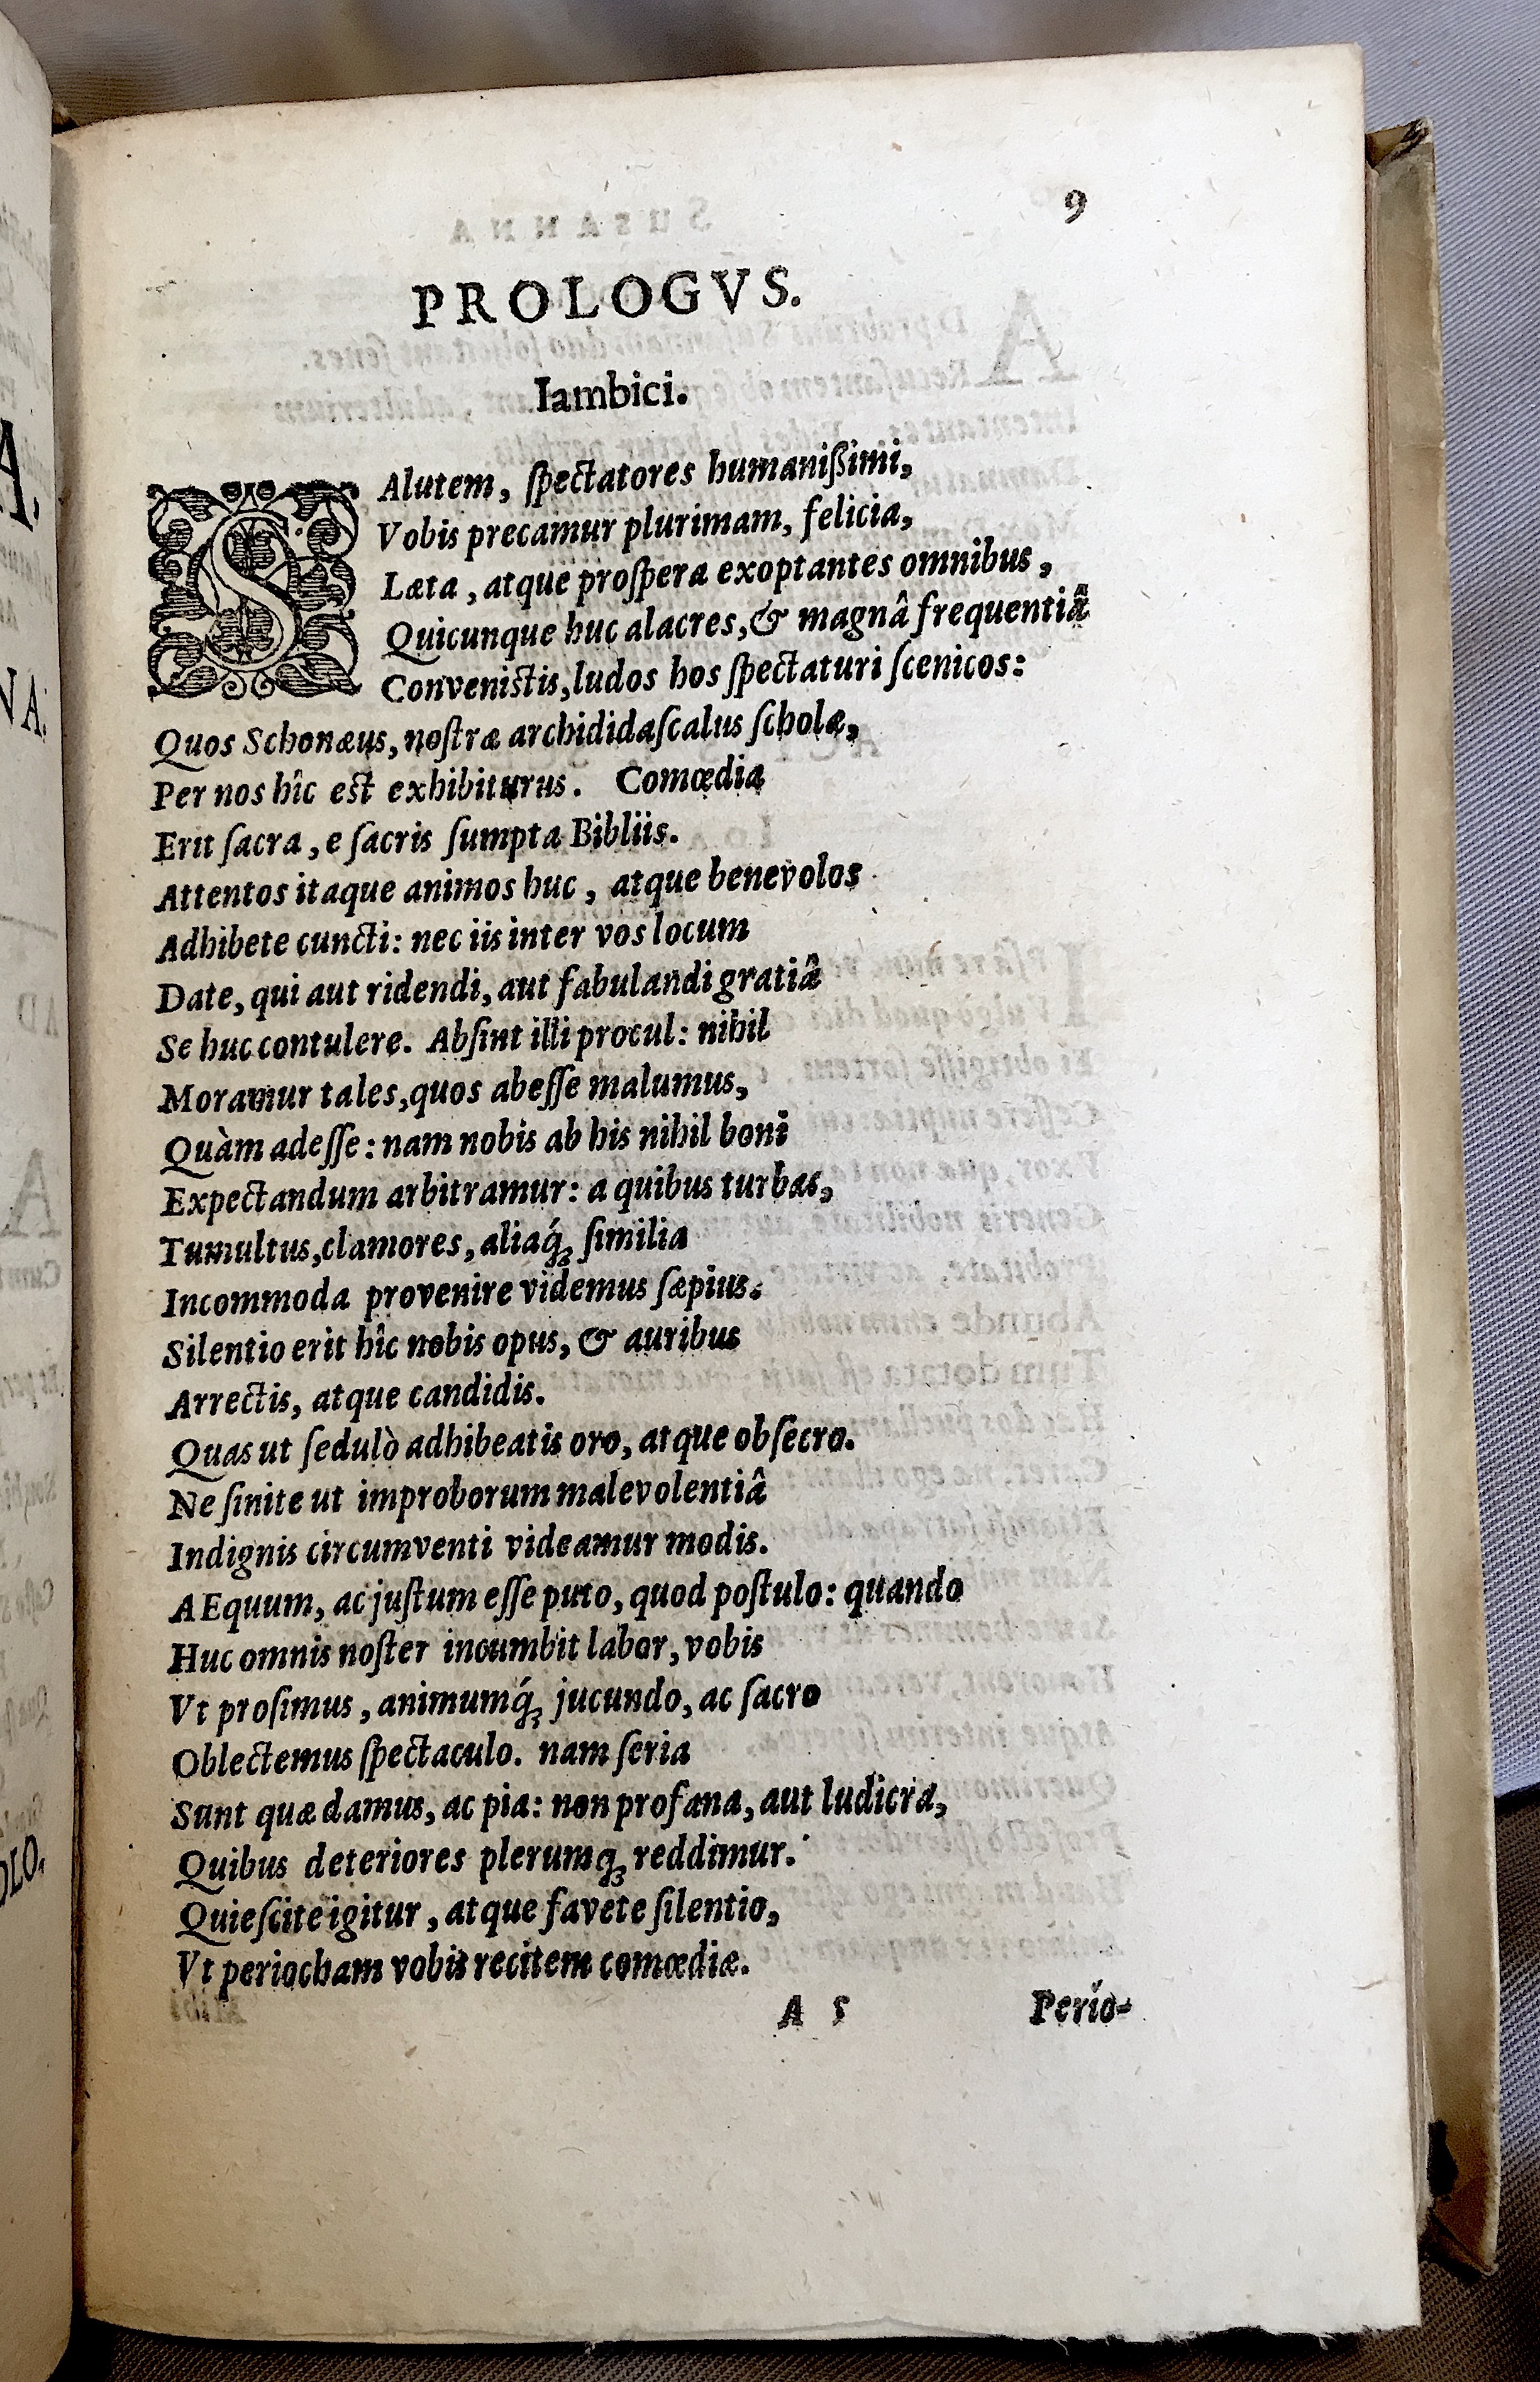 9
PROLOGVS.
Iambici.
SAlutem, ſpectatores humaniſſimi,
Vobis precamur plurimam, felicia,
Læta, atque proſpera exoptantes omnibus,
Quicunque huc alacres, & magnâ frequentiâ
Conveniſtis, ludos hos ſpectaturi ſcenicos:
Quos Schonæus, noſtræ archididaſcalus ſcholæ,
Per nos hîc eſt exhibiturus. Comœdia
Erit ſacra, e ſacris ſumpta Bibliis.
Attentos itaque animos huc, atque benevolos
Adhibete cuncti: nec iis inter vos locum
Date, qui aut ridendi, aut fabulandi gratiâ
Se huc contulere. Abſint illi procul: nihil
Moramur tales, quos abeſſe malumus,
Quàm adeſſe: nam nobis ab his nihil boni
Expectandum arbitramur: a quibus turbas,
Tumultus, clamores, aliaq́ꝫ ſimilia
Incommoda provenire videmus ſæpius.
Silentio erit hîc nobis opus, & auribus
Arrectis, atque candidis.
Quas ut ſedulò adhibeatis oro, atque obſecro.
Ne ſinite ut improborum malevolentiâ
Indignis circumventi videamur modis.
AEquum, ac juſtum eſſe puto, quod poſtulo: quando
Huc omnis noſter incumbit labor, vobis
Vt proſimus, animumq́ꝫ jucundo, ac ſacro
Oblectemus ſpectaculo. nam ſeria
Sunt quæ damus, ac pia: non profana, aut ludicra,
Quibus deteriores plerumqꝫ reddimur.
Quieſcite igitur, atque favete ſilentio,
Vt periocham vobis recitem comœdiæ.
A 5 Perio-